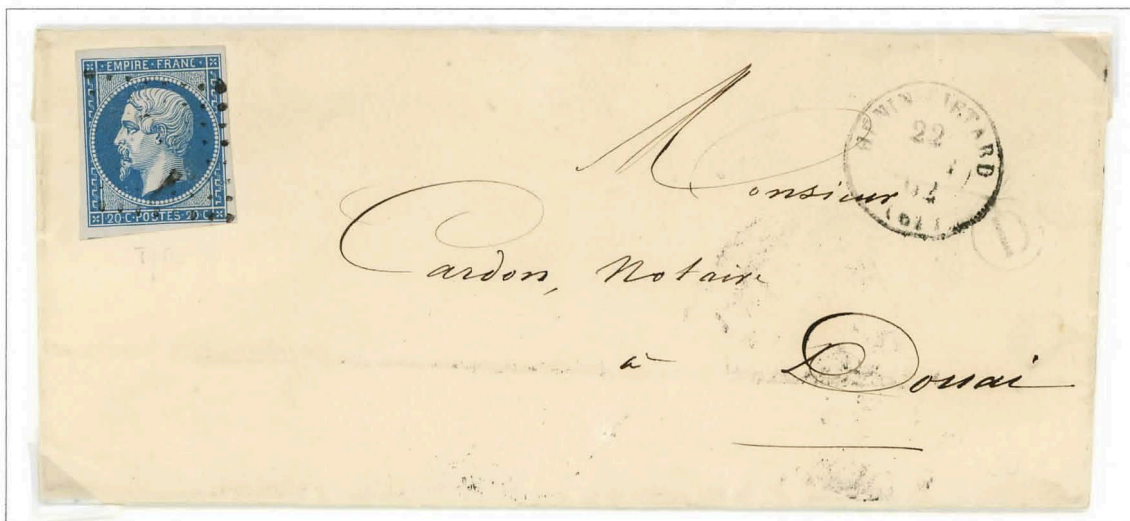 EMPIRE · FRANC
20·C·POSTES·20·C
HENIN LIETARD
22
62
(61)
D
Monsieur
Cardon, Notaire
à Douai